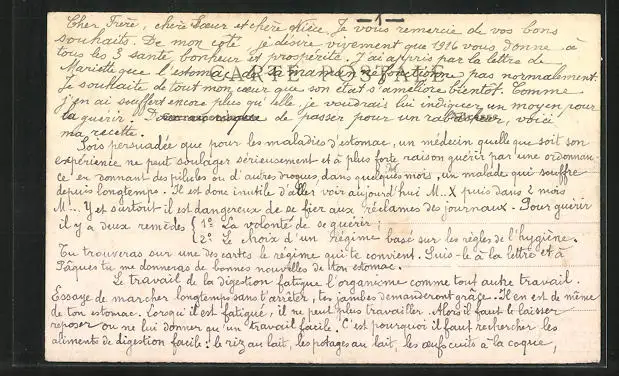 — 1 —
Cher Frère, chère Sœur et chère Nièce, Je vous remercie de vos bons
souhaits. De mon côté, je désire vivement que 1916 vous donne à
tous les 3 santé bonheur et prospérité. J'ai appris par la lettre de
Mariette que l'estomac de sa maman ne fonctionne pas normalement.
CARTE POSTALE
Je souhaite de tout mon cœur que son état s'améliore bientôt. Comme
j'en ai souffert encore plus qu'elle, je voudrais lui indiquer un moyen pour
la guérir. de passer pour un voici
ma recette.
Sois persuadée que pour les maladies d'estomac, un médecin quelle que soit son
expérience ne peut soulager sérieusement et à plus forte raison guérir par une ordonnan-
ce en donnant des pilules ou d'autres drogues, dans quelques mois, un malade qui souffre
depuis longtemps. Il est donc inutile d'aller voir aujourd'hui M..X puis dans 2 mois
M... Y et surtout il est dangereux de se fier aux réclames des journaux. Pour guérir
il y a deux remèdes { 1º La volonté de se guérir ;
2º Le choix d'un régime basé sur les règles de l'hygiène.
Tu trouveras sur une des cartes le régime qui te convient. Suis-le à la lettre et à
Pâques tu me donneras de bonnes nouvelles de ton estomac.
Le travail de la digestion fatigue l'organisme comme tout autre travail.
Essaye de marcher longtemps sans t'arrêter, tes jambes demanderont grâce. Il en est de même
de ton estomac. Lorsqu'il est fatigué, il ne peut plus travailler. Alors il faut le laisser
reposer ou ne lui donner qu'un travail facile. C'est pourquoi il faut rechercher les
aliments de digestion facile : le riz au lait, les potages au lait, les œufs cuits à la coque,